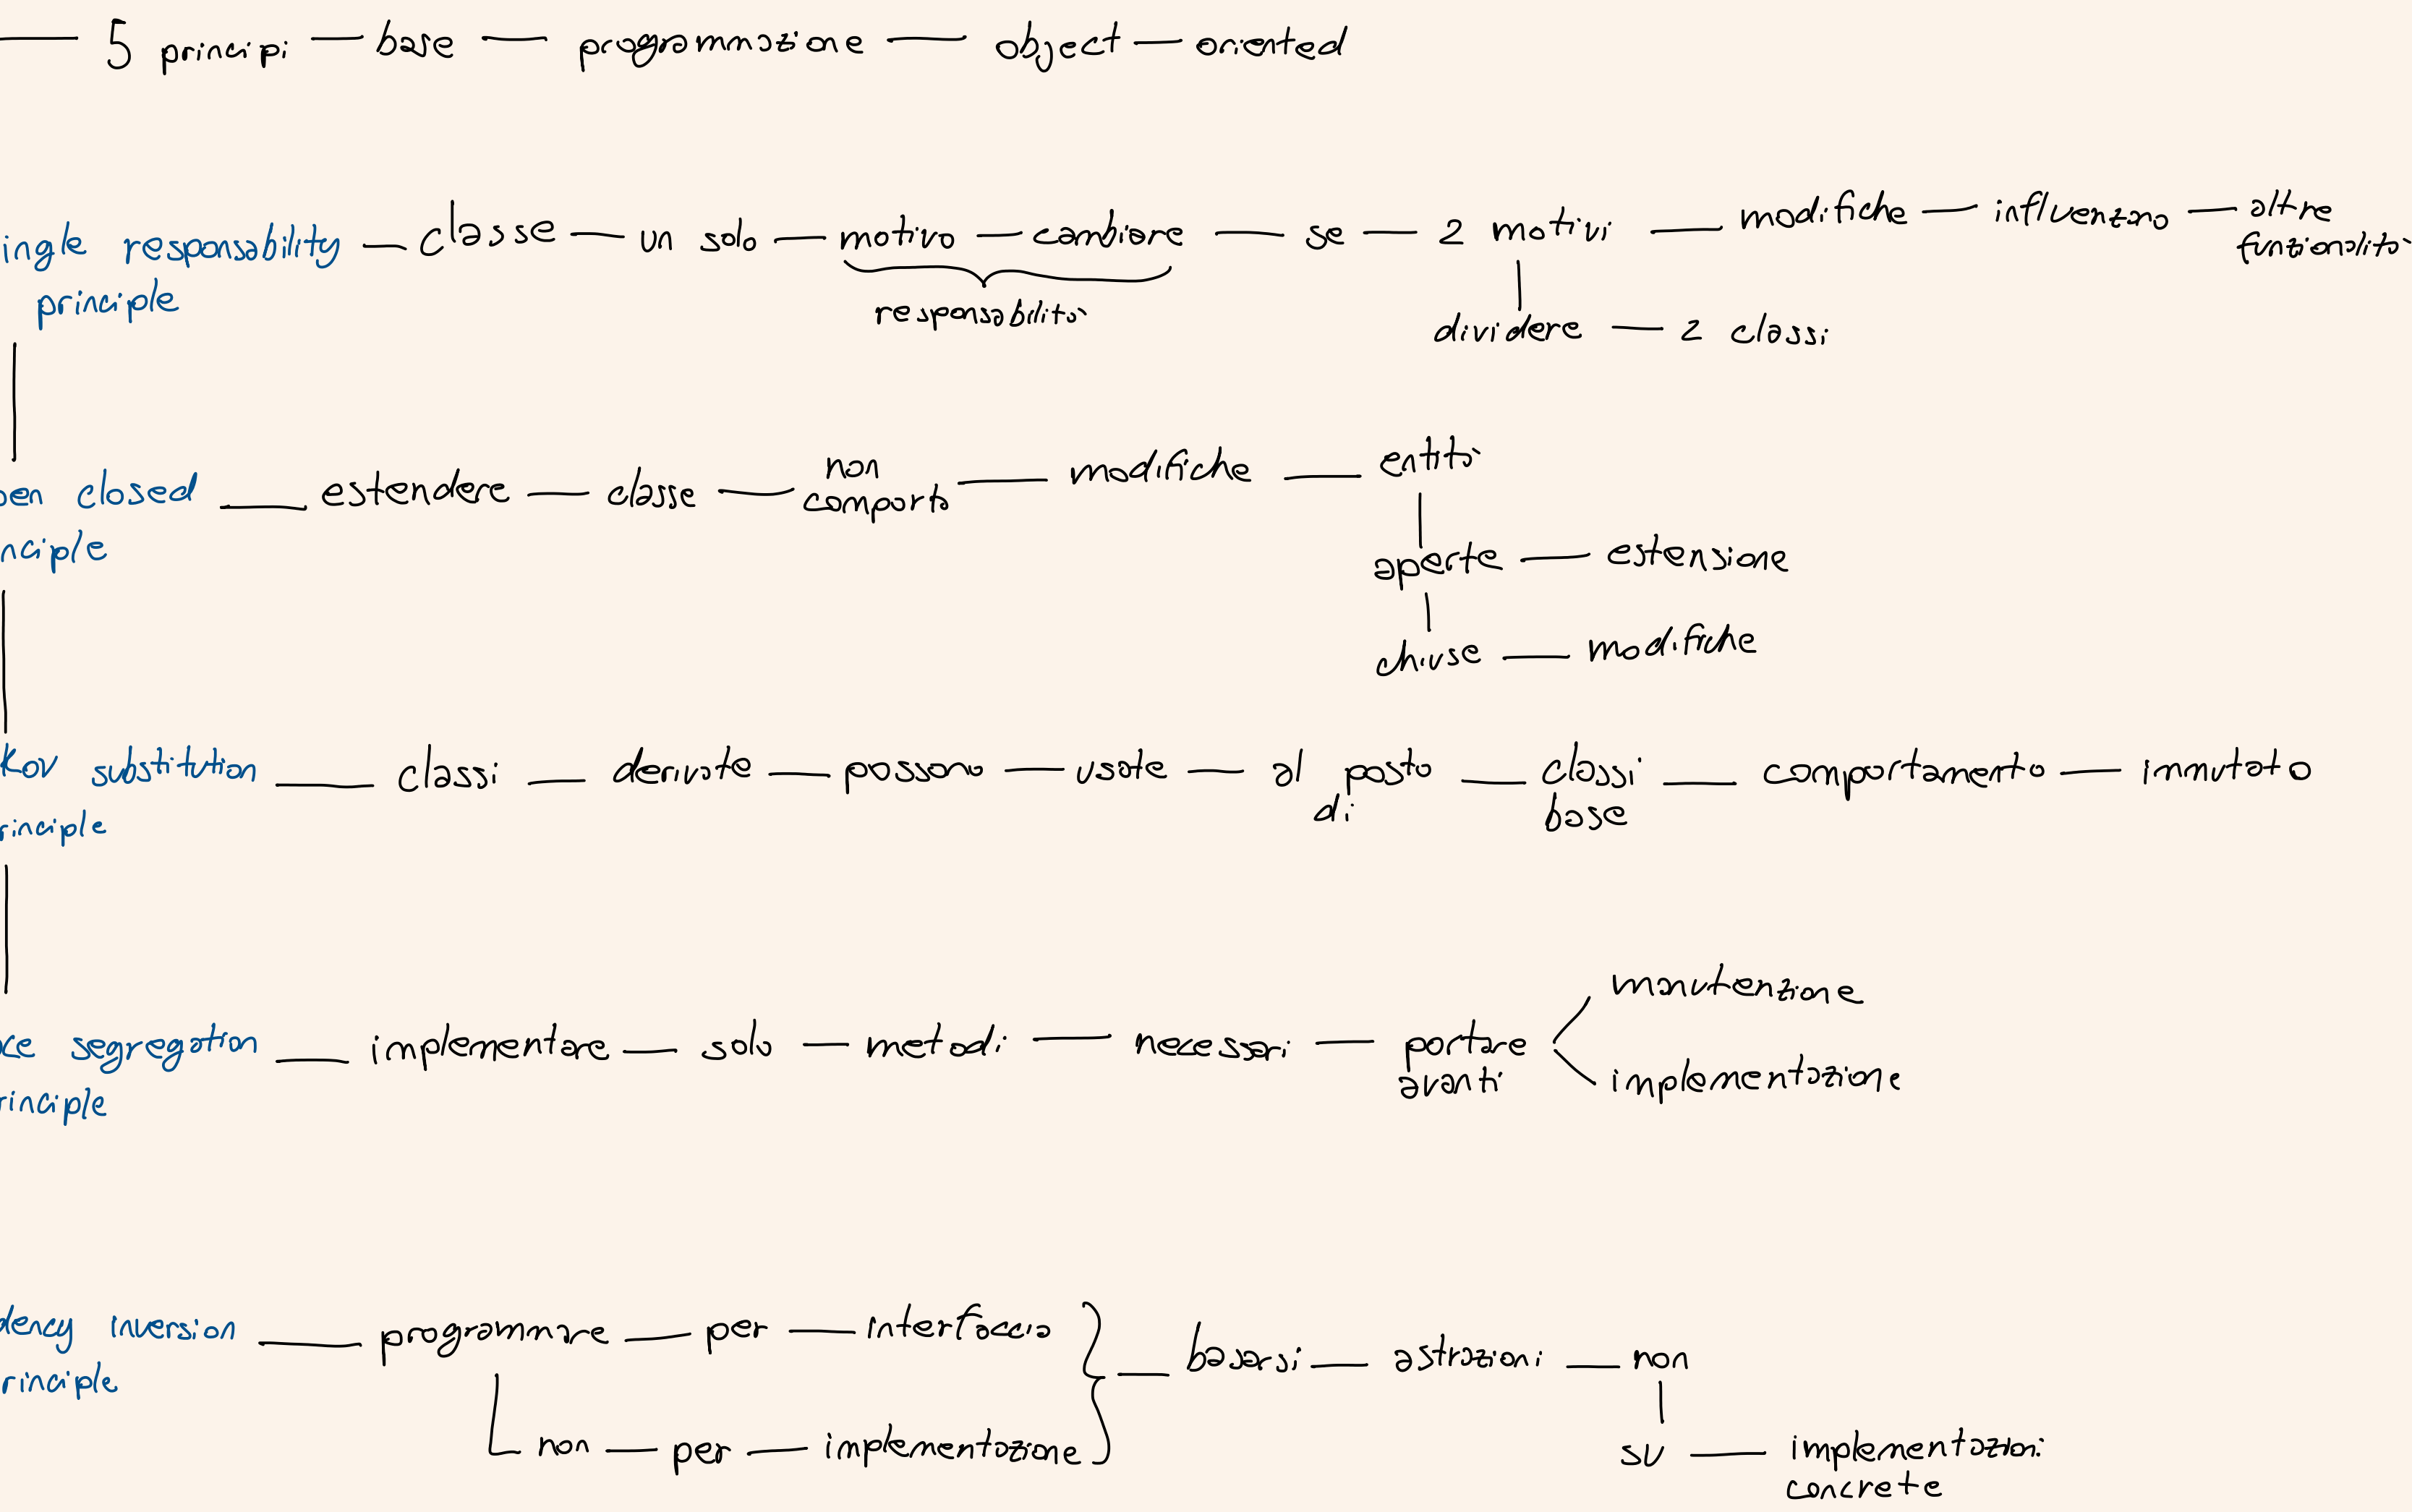 5 principi — base — programmazione — object — oriented
ingle responsability — classe — un solo — motivo — cambiare — se — 2 motivi — modifiche — influenzano — altre
principle
funzionalità
responsabilità
dividere — 2 classi
pen closed — estendere — classe — non comporta — modifiche — entità
nciple
aperte — estensione
chiuse — modifiche
kov substitution — classi — derivate — possono — usate — al posto di — classi base — comportamento — immutato
rinciple
ace segregation — implementare — solo — metodi — necessari — portare avanti
rinciple
manutenzione
implementazione
dency inversion — programmare — per — interfaccia
rinciple
non — per — implementazione
basarsi — astrazioni — non
su — implementazioni
concrete